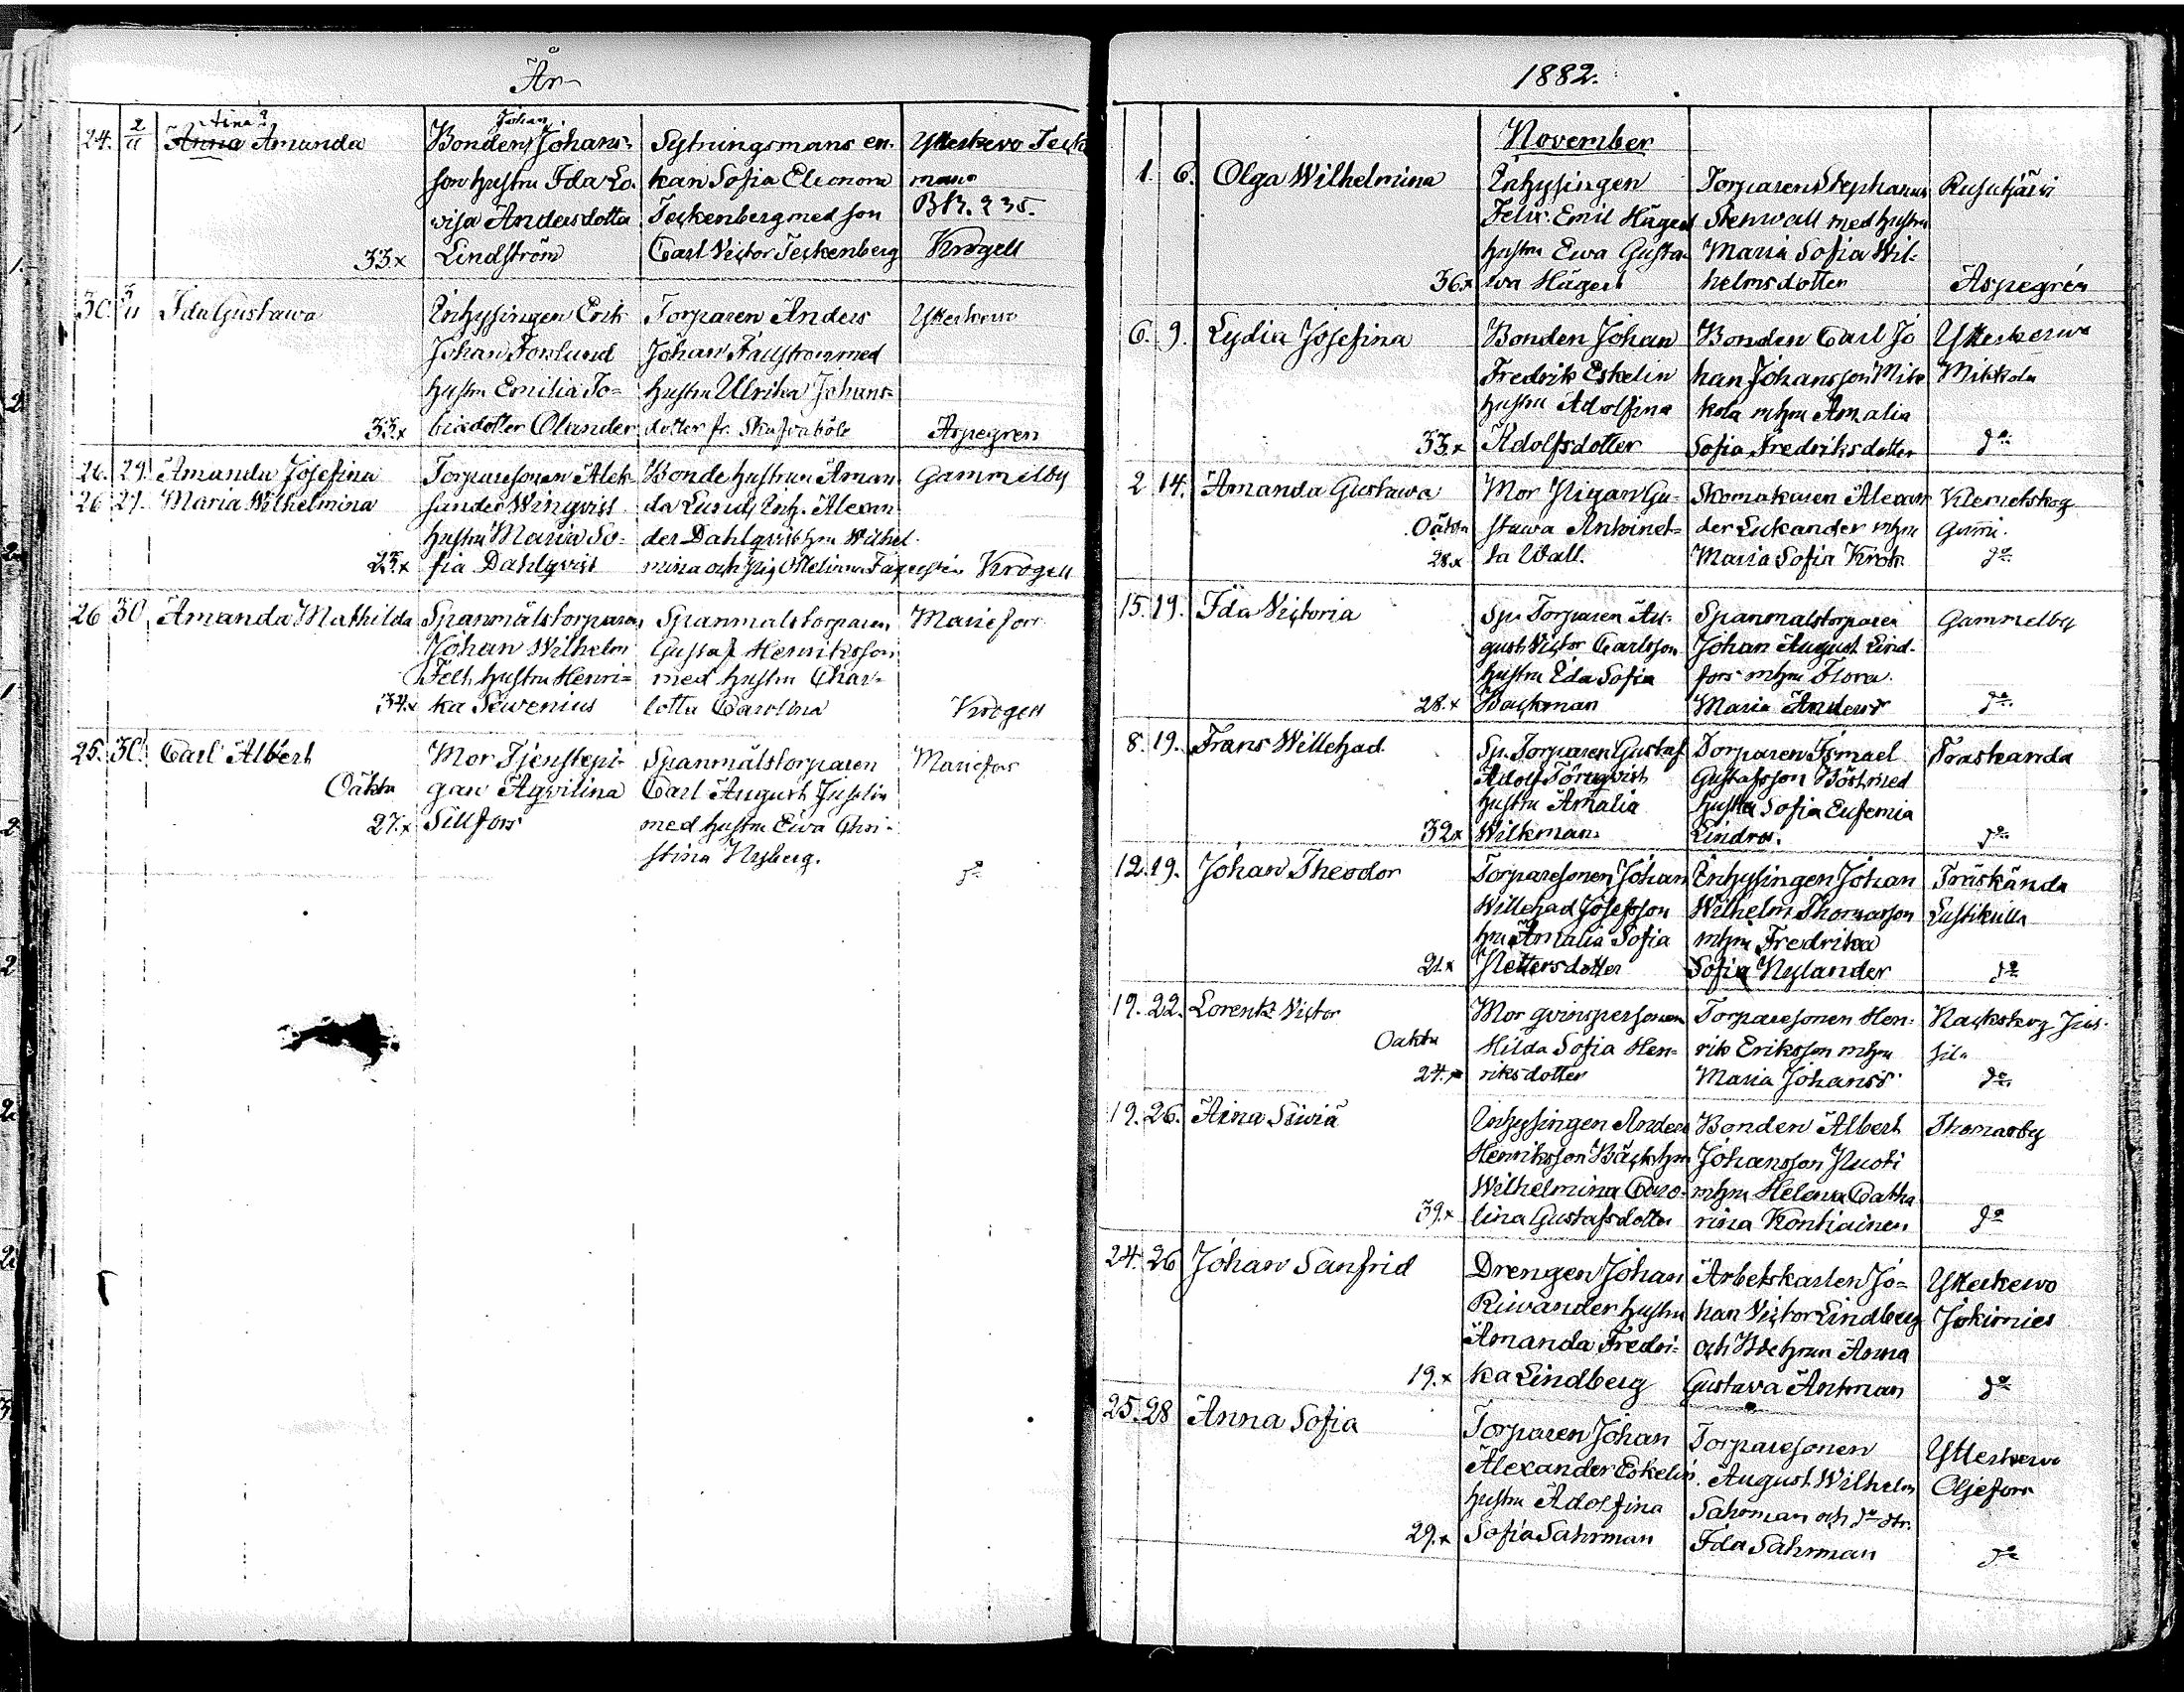 År
24. 2/11 Anna Amanda
Aina?
Bonden Johans-
Johan
son hustru Ida Lo-
visa Andersdotter
33x Lindström
Sytningsmans en-
kan Sofia Eleonora
Teckenberg med son
Carl Victor Teckenberg
Ytterkervo Teck
mans
BK. 235.
Krogell
30. 3/11 Ida Gustawa
Inhysingen Erik
Johan Forslund
hustru Emilia To-
33.x biædotter Olander
Torparen Anders
Johan Fallström med
hustru Ulrika Johans-
dotter fr. Skafvaböle
Ytterkervo
Aspegren
26. 29. Amanda Josefina
26 29. Maria Wilhelmina
Torparesonen Alek-
sander Winqvist
hustru Maria So-
25.x fia Dahlqvist
Bonde hustrun Aman
da Lund, Inh. Alexan
der Dahlqvist hru Wilhel-
mina och pig Melinna
Gammelby
Krogell
26 30. Amanda Mathilda
Spanmålstorparen
Johan Wilhelm
Felt hustru Henri-
34.x ka Sevenius
Spanmålstorparen
Gustaf Henriksson
med hustru Char-
lotta Carolina
Mariefors
Krogell
25. 30. Carl Albert
Oäkta
27.x
Mor Tjenstepi-
gan Aqvilina
Sillfors
Spanmålstorparen
Carl August Juselin
med hustru Ewa Chri-
stina Nyberg.
Mariefors
do
1882.
November
1. 6. Olga Wilhelmina
Inhysingen
Felix Emil Hägert
hustru Ewa Gusta-
36.x wa Hägert
Torparen Stephanus
Stenwall med hustru
Maria Sofia Wil-
helmsdotter
Rusutjärvi
Aspegrén
6. 9. Lydia Josefina
Bonden Johan
Fredrik Eskelin
hustru Adolfina
33.x Adolfsdotter
Bonden Carl Jo
han Johansson Mik
kola mhru Amalia
Sofia Fredriksdotter
Ytterkervo
Mikkola
do
2 14. Amanda Gustawa
Oäkta
28.x
Mor Pigan Gu-
stawa Antoinet-
ta Wall.
Skomakaren Alexan
der Lukander mhru
Maria Sofia Krok
Klemetskog
Gammi.
do
15. 19. Ida Victoria
Sp. Torparen Au-
gust Victor Carlsson
hustru Eda Sofia
28.x Backman
Spanmalstorparen
Johan August Lind-
fors mhru Flora
Maria Andersd
Gammelby
do
8. 19. Frans Willehad
Sp. Torparen Gustaf
Adolf Törnqvist
hustru Amalia
32x Wilkman
Torparen Ismael
Gustafsson Böst med
hustru Sofia Eufemia
Lindros.
Träskanda
do
12. 19. Johan Theodor
Torparesonen Johan
Willehad Josefsson
hru Amalia Sofia
21.x Pettersdotter
Inhysingen Johan
Wilhelm Thomasson
mhru Fredrika
Sofia Nylander
Träskända
Lustikulla
do
19. 22. Lorentz Victor
Oäkta
24.x
Mor qvinspersonen
Hilda Sofia Hen-
riksdotter
Torparesonen Hen-
rik Eriksson mhru
Maria Johansd.
Nackskog Jus-
sila
do
19. 26. Aina Siviä
Inhysingen Anders
Henriksson Bäck hru
Wilhelmina Caro-
39.x lina Gustafsdotter
Bonden Albert
Johansson Puoti
mhru Helena Catha
rina Kontiainen
Thomasby
do
24. 26 Johan Sanfrid
Drengen Johan
Riwander hustru
Amanda Fredri-
19.x ka Lindberg
Arbetskarlen Jo-
han Victor Lindberg
och Bdehrun Anna
Gustava Antman
Ytterkervo
Jokimies
do
25. 28 Anna Sofia
Torparen Johan
Alexander Eskelin
hustru Adolfina
29.x Sofia Sahrman
Torparesonen
August Wilhelm
Sahrman och do str.
Ida Sahrman
Ytterkervo
Oljefors
do